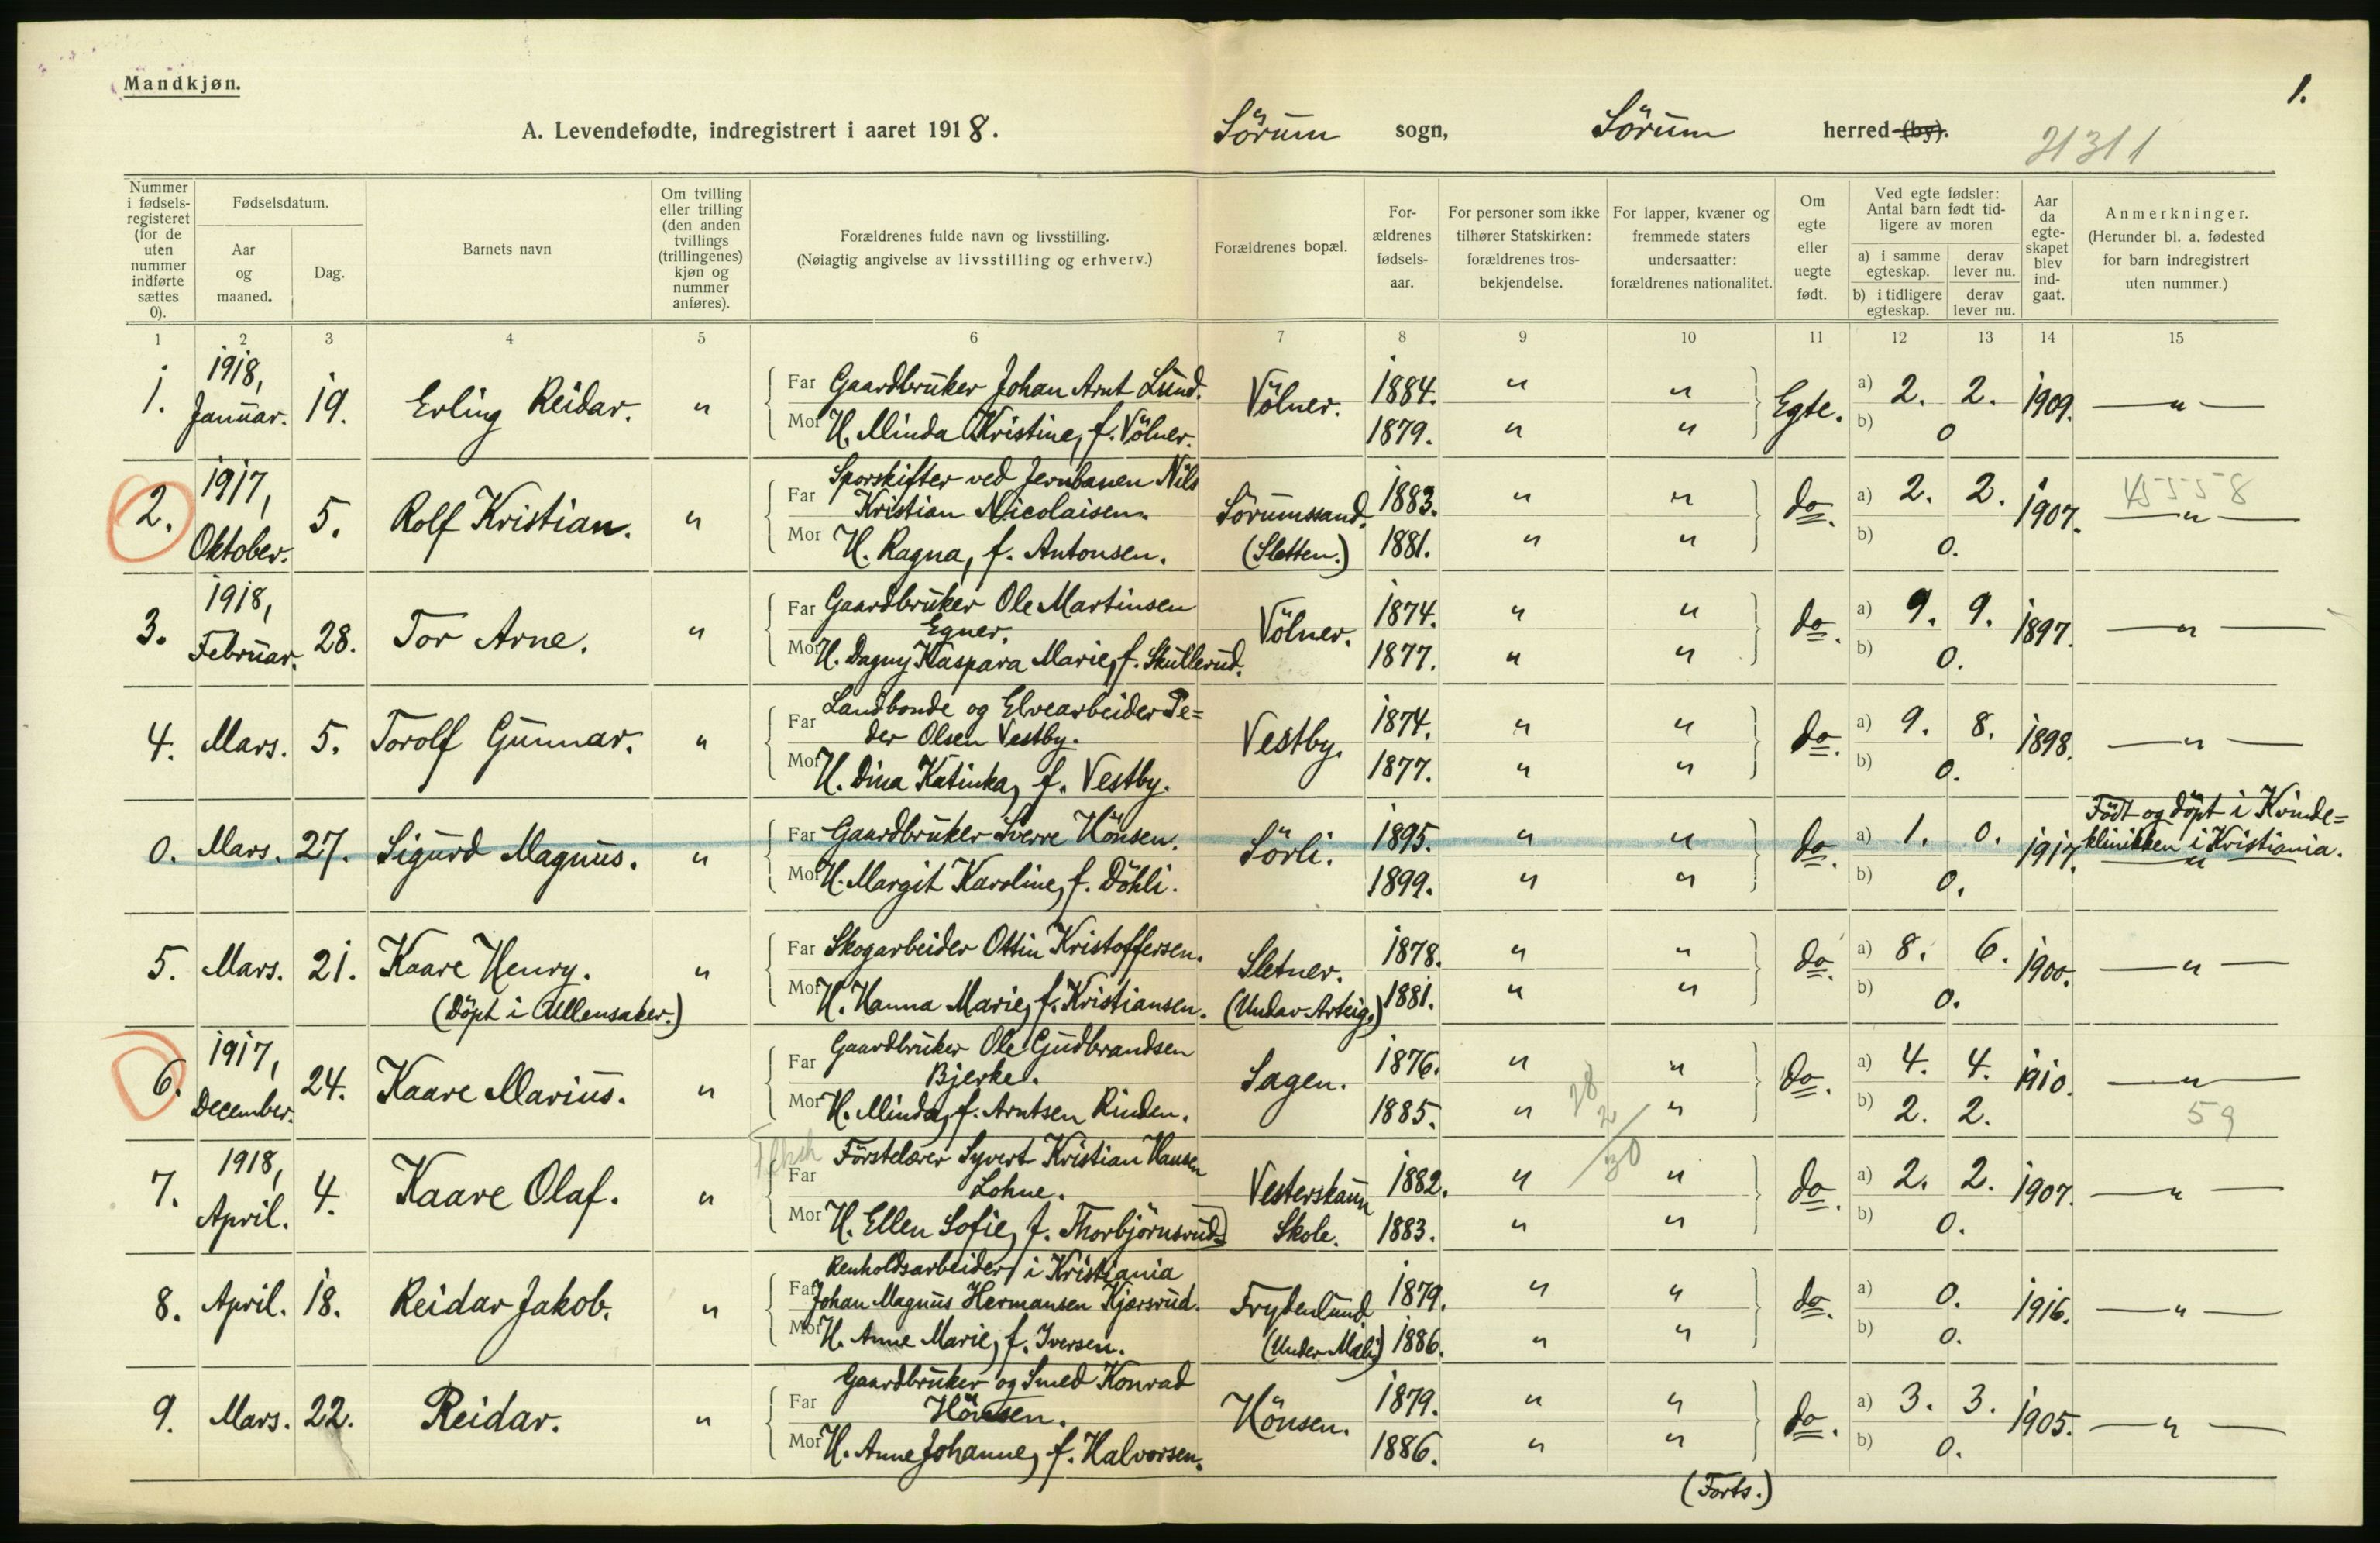 Mandkjøn.
1.
A. Levendefødte, indregistrert i aaret 1918. Sörum sogn, Sörum herred (by).
21311
Nummer i fødsels-registeret (for de uten nummer indførte sættes 0).
Fødselsdatum.
Aar og maaned.
Dag.
Barnets navn
Om tvilling eller trilling (den anden tvillings (trillingenes) kjøn og nummer anføres).
Forældrenes fulde navn og livsstilling.
(Nøiagtig angivelse av livsstilling og erhverv.)
Forældrenes bopæl.
For-ældrenes fødsels-aar.
For personer som ikke tilhører Statskirken: forældrenes tros-bekjendelse.
For lapper, kvæner og fremmede staters undersaatter: forældrenes nationalitet.
Om egte eller uegte født.
Ved egte fødsler: Antal barn født tid-ligere av moren
a) i samme egteskap.
derav lever nu.
b) i tidligere egteskap.
derav lever nu.
Aar da egte-skapet blev ind-gaat.
Anmerkninger.
(Herunder bl. a. fødested for barn indregistrert uten nummer.)
1 2 3 4 5 6 7 8 9 10 11 12 13 14 15
1. 1918, Januar. 19. Erling Reidar. „
Far Gaardbruker Johan Arnt Lund. Völner. 1884. „ „ Egte. a) 2. 2. 1909. — „ —
Mor H. Minda Kristine, f. Völner. 1879. „ „ b) 0
2. 1917, Oktober. 5. Rolf Kristian. „
Far Sporskifter ved Jernbanen Nils
Kristian Nicolaisen. Sörumssand. 1883. „ „ do. a) 2. 2. 1907. — „ —
45558
Mor H. Ragna, f. Antonsen. (Sletten.) 1881. „ „ b) 0.
3. 1918, Februar. 28. Tor Arne. „
Far Gaardbruker Ole Martinsen
Egner. Völner. 1874. „ „ do. a) 9. 9. 1897. — „ —
Mor H. Dagny Kaspara Marie, f. Skullerud. 1877. „ „ b) 0.
4. Mars. 5. Torolf Gunnar. „
Far Landbonde og Elvearbeider Pe=
der Olsen Vestby. Vestby. 1874. „ „ do. a) 9. 8. 1898. — „ —
Mor H. Dina Katinka, f. Vestby. 1877. „ „ b) 0.
0. Mars. 27. Sigurd Magnus. „
Far Gaardbruker Sverre Hönsen. Sörli. 1895. „ „ do. a) 1. 0. 1917. Födt og döpt i Kvinde=
klinikken i Kristiania.
„
Mor H. Margit Karoline, f. Döhli. 1899. „ „ b) 0.
5. Mars. 21. Kaare Henry. „
(Döpt i Ullensaker.)
Far Skogarbeider Ottin Kristoffersen. Sletner. 1878. „ „ do. a) 8. 6. 1900. — „ —
Mor H. Hanna Marie, f. Kristiansen. (Undar Arteig.) 1881. „ „ b) 0.
6. 1917, December. 24. Kaare Marius. „
Far Gaardbruker Ole Gudbrandsen
Bjerke. Sagen. 1876. „ „ do. a) 4. 4. 1910. — „ —
Mor H. Minda, f. Arntsen Rinden. 1885. „ „ b) 2. 2.
59
28
2
30
7. 1918, April. 4. Kaare Olaf. „
Far Förstelærer Syvert Kristian Hansen
Lohne. Vesterskaun 1882. „ „ do. a) 2. 2. 1907. — „ —
Mor H. Ellen Sofie, f. Thorbjörnsrud. Skole. 1883. „ „ b) 0.
8. April. 18. Reidar Jakob. „
Renholdsarbeider i Kristiania
Far Johan Magnus Hermansen Kjærsrud. Frydenlund 1879. „ „ do. a) 0. 1916. — „ —
Mor H. Anne Marie, f. Iversen. (Under Mæli) 1886. „ „ b) 0.
9. Mars. 22. Reidar. „
Far Gaardbruker og Smed Konrad
Hönsen. Hönsen. 1879. „ „ do. a) 3. 3. 1905. — „ —
Mor H. Anne Johanne, f. Halvorsen. 1886. „ „ b) 0.
(Forts.)